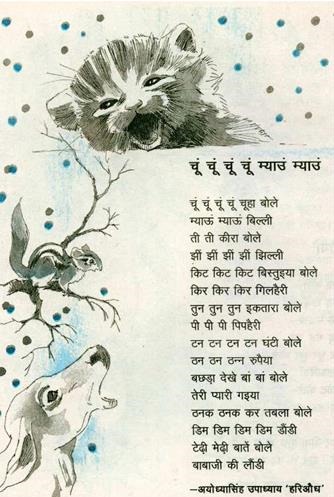 चूं चूं चूं चूं म्याउं म्याउं
चूं चूं चूं चूं चूहा बोले
म्याऊं म्याऊं बिल्ली
ती ती कीरा बोले
झीं झीं झीं झीं झिल्ली
किट किट किट बिस्तुइया बोले
किर किर किर गिलहैरी
तुन तुन तुन इकतारा बोले
पी पी पी पिपहैरी
टन टन टन टन घंटी बोले
ठन ठन ठन्न रुपैया
बछड़ा देखे बां बां बोले
तेरी प्यारी गइया
ठनक ठनक कर तबला बोले
डिम डिम डिम डिम डौंडी
टेढ़ी मेढ़ी बातें बोले
बाबाजी की लौंडी
–अयोध्यासिंह उपाध्याय 'हरिऔध'